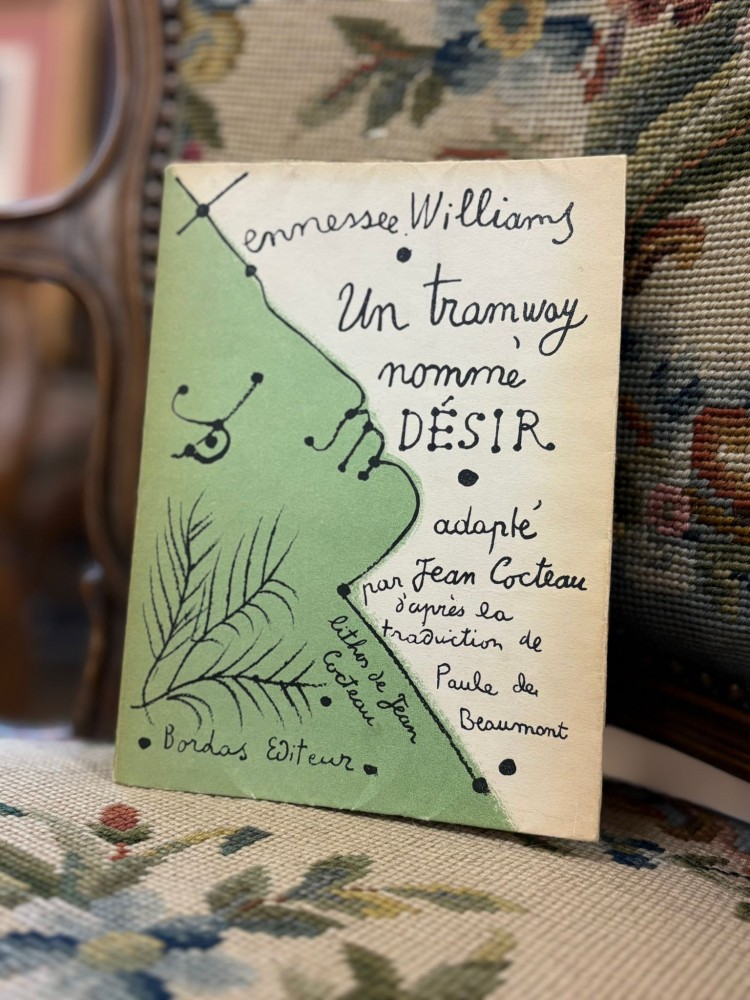 Tennessee Williams
Un tramway
nommé
DÉSIR
adapté
par Jean Cocteau
d'après la
traduction de
Paule de
Beaumont
lithos de Jean
Cocteau
Bordas Editeur